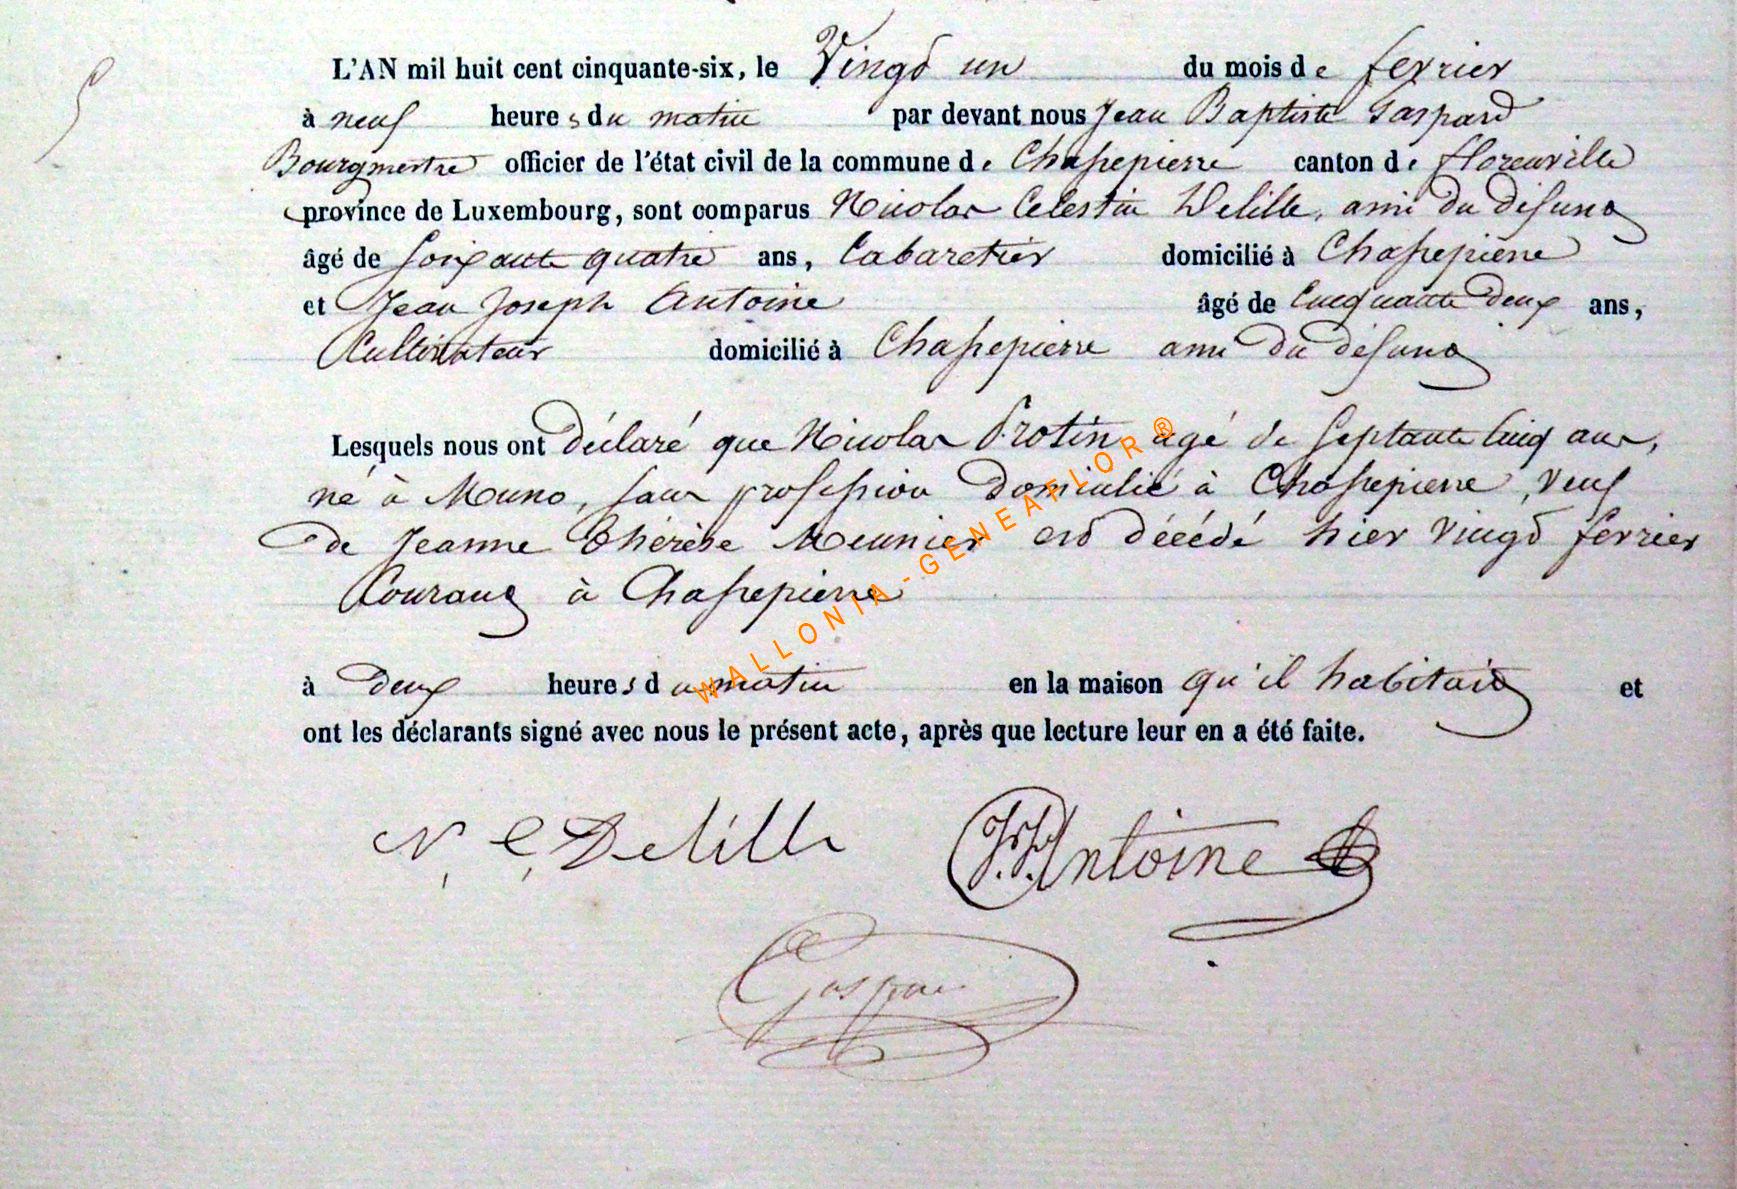 5
L'AN mil huit cent cinquante-six, le Vingt un du mois de fevrier
à neuf heures du matin par devant nous Jean Baptiste Gaspard
Bourgmestre officier de l'état civil de la commune de Chassepierre canton de florenville
province de Luxembourg, sont comparus Nicolas Celestin Delille, ami du défunt
âgé de Soixante quatre ans, Cabaretier domicilié à Chassepierre
et Jean Joseph Antoine âgé de Cinquante deux ans,
Cultivateur domicilié à Chassepierre ami du défunt
Lesquels nous ont déclaré que Nicolas Protin agé de Septante Cinq ans,
né à Muno, sans profession domicilié à Chassepierre, veuf
de Jeanne Thérèse Meunier est décédé hier vingt fevrier
Courant à Chassepierre
à deux heures du matin en la maison qu'il habitait et
ont les déclarants signé avec nous le présent acte, après que lecture leur en a été faite.
N. C. Delille J. J. Antoine
Gaspard
WALLONIA-GENEAFLOR®